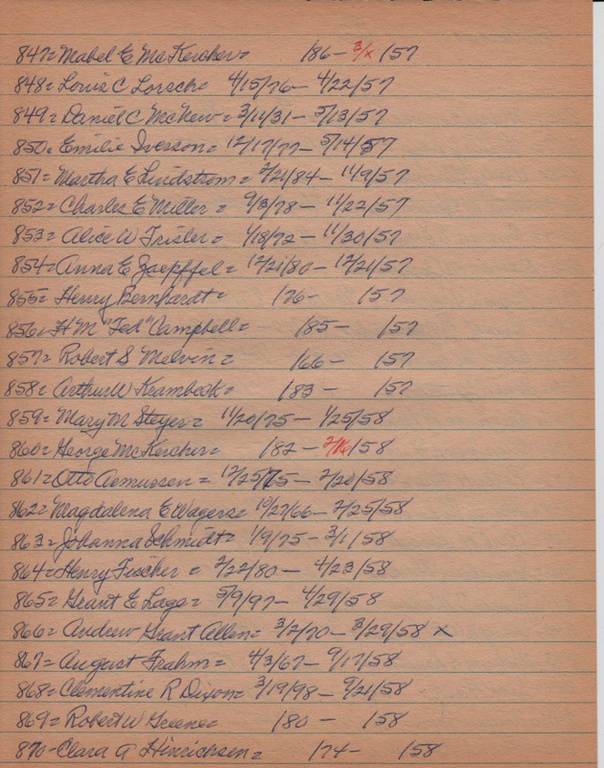 847= Mabel E McKercher= /86- 3/x /57
848= Louis C Lorsch= 4/15/76- 4/22/57
849= Daniel C McNew= 3/11/31- 5/13/57
850= Emilie Iverson= 12/17/77- 5/14/57
851= Martha E Lindstrom= 2/21/84- 11/9/57
852= Charles E Miller= 9/3/78- 11/22/57
853= Alice W Frisler= 4/18/72- 11/30/57
854= Anna E Zaepffel= 12/21/80- 12/21/57
855= Henry Bernhardt= /76- /57
856= H M "Ted" Campbell= /85- /57
857= Robert S Melvin= /66- /57
858= Arthur W Kambeck= /83- /57
859= Mary M Steyer= 11/20/75- 1/25/58
860= George McKercher= /82- /58
861= Otto Asmussen= 12/25/75- 2/20/58
862= Magdalena E Wagers= 10/27/66- 2/25/58
863= Johanna Schmidt= 1/9/75- 3/1/58
864= Henry Fischer= 2/22/80- 4/23/58
865= Grant E Lage= 5/9/97- 4/29/58
866= Andrew Grant Allen= 3/2/70- 3/29/58 x
867= August Frahm= 4/3/67- 9/17/58
868= Clementine R Dixon= 3/19/98- 9/21/58
869= Robert W Greene= /80- /58
870- Clara A Hinrichsen= /74- /58